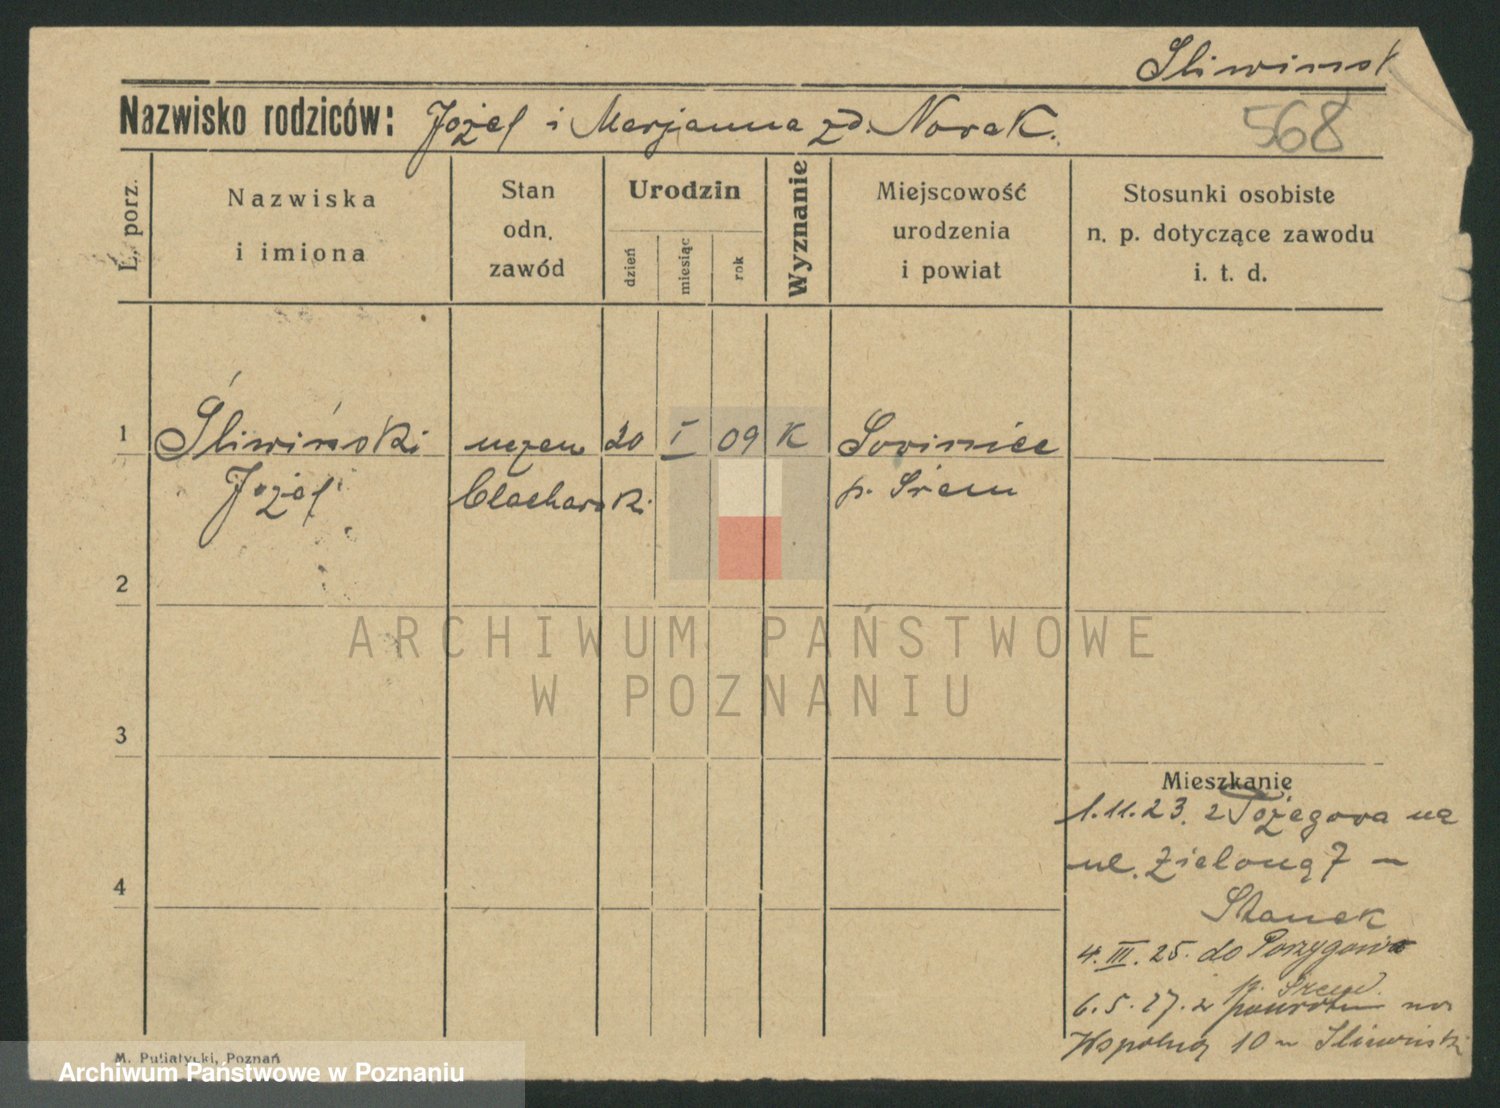 Śliwińsk
Nazwisko rodziców: Józef i Marjanna zd. Nowak.
568
L. porz.
Nazwiska
i imiona
Stan
odn.
zawód
Urodzin
dzień
miesiąc
rok
Wyznanie
Miejscowość
urodzenia
i powiat
Stosunki osobiste
n. p. dotyczące zawodu
i. t. d.
1 Śliwiński uczeń 20 I 09 K Sowiniec
Józef blacharski p. Śrem
2
ARCHIWUM PAŃSTWOWE
W POZNANIU
3
Mieszkanie
1.11.23. z
ul. Zieloną 7 –
Stanek
4
4. III. 25. do
6.5.27. z powrotem na
Wspólną 10 u Śliwiński
M. Putiatycki, Poznań
Archiwum Państwowe w Poznaniu